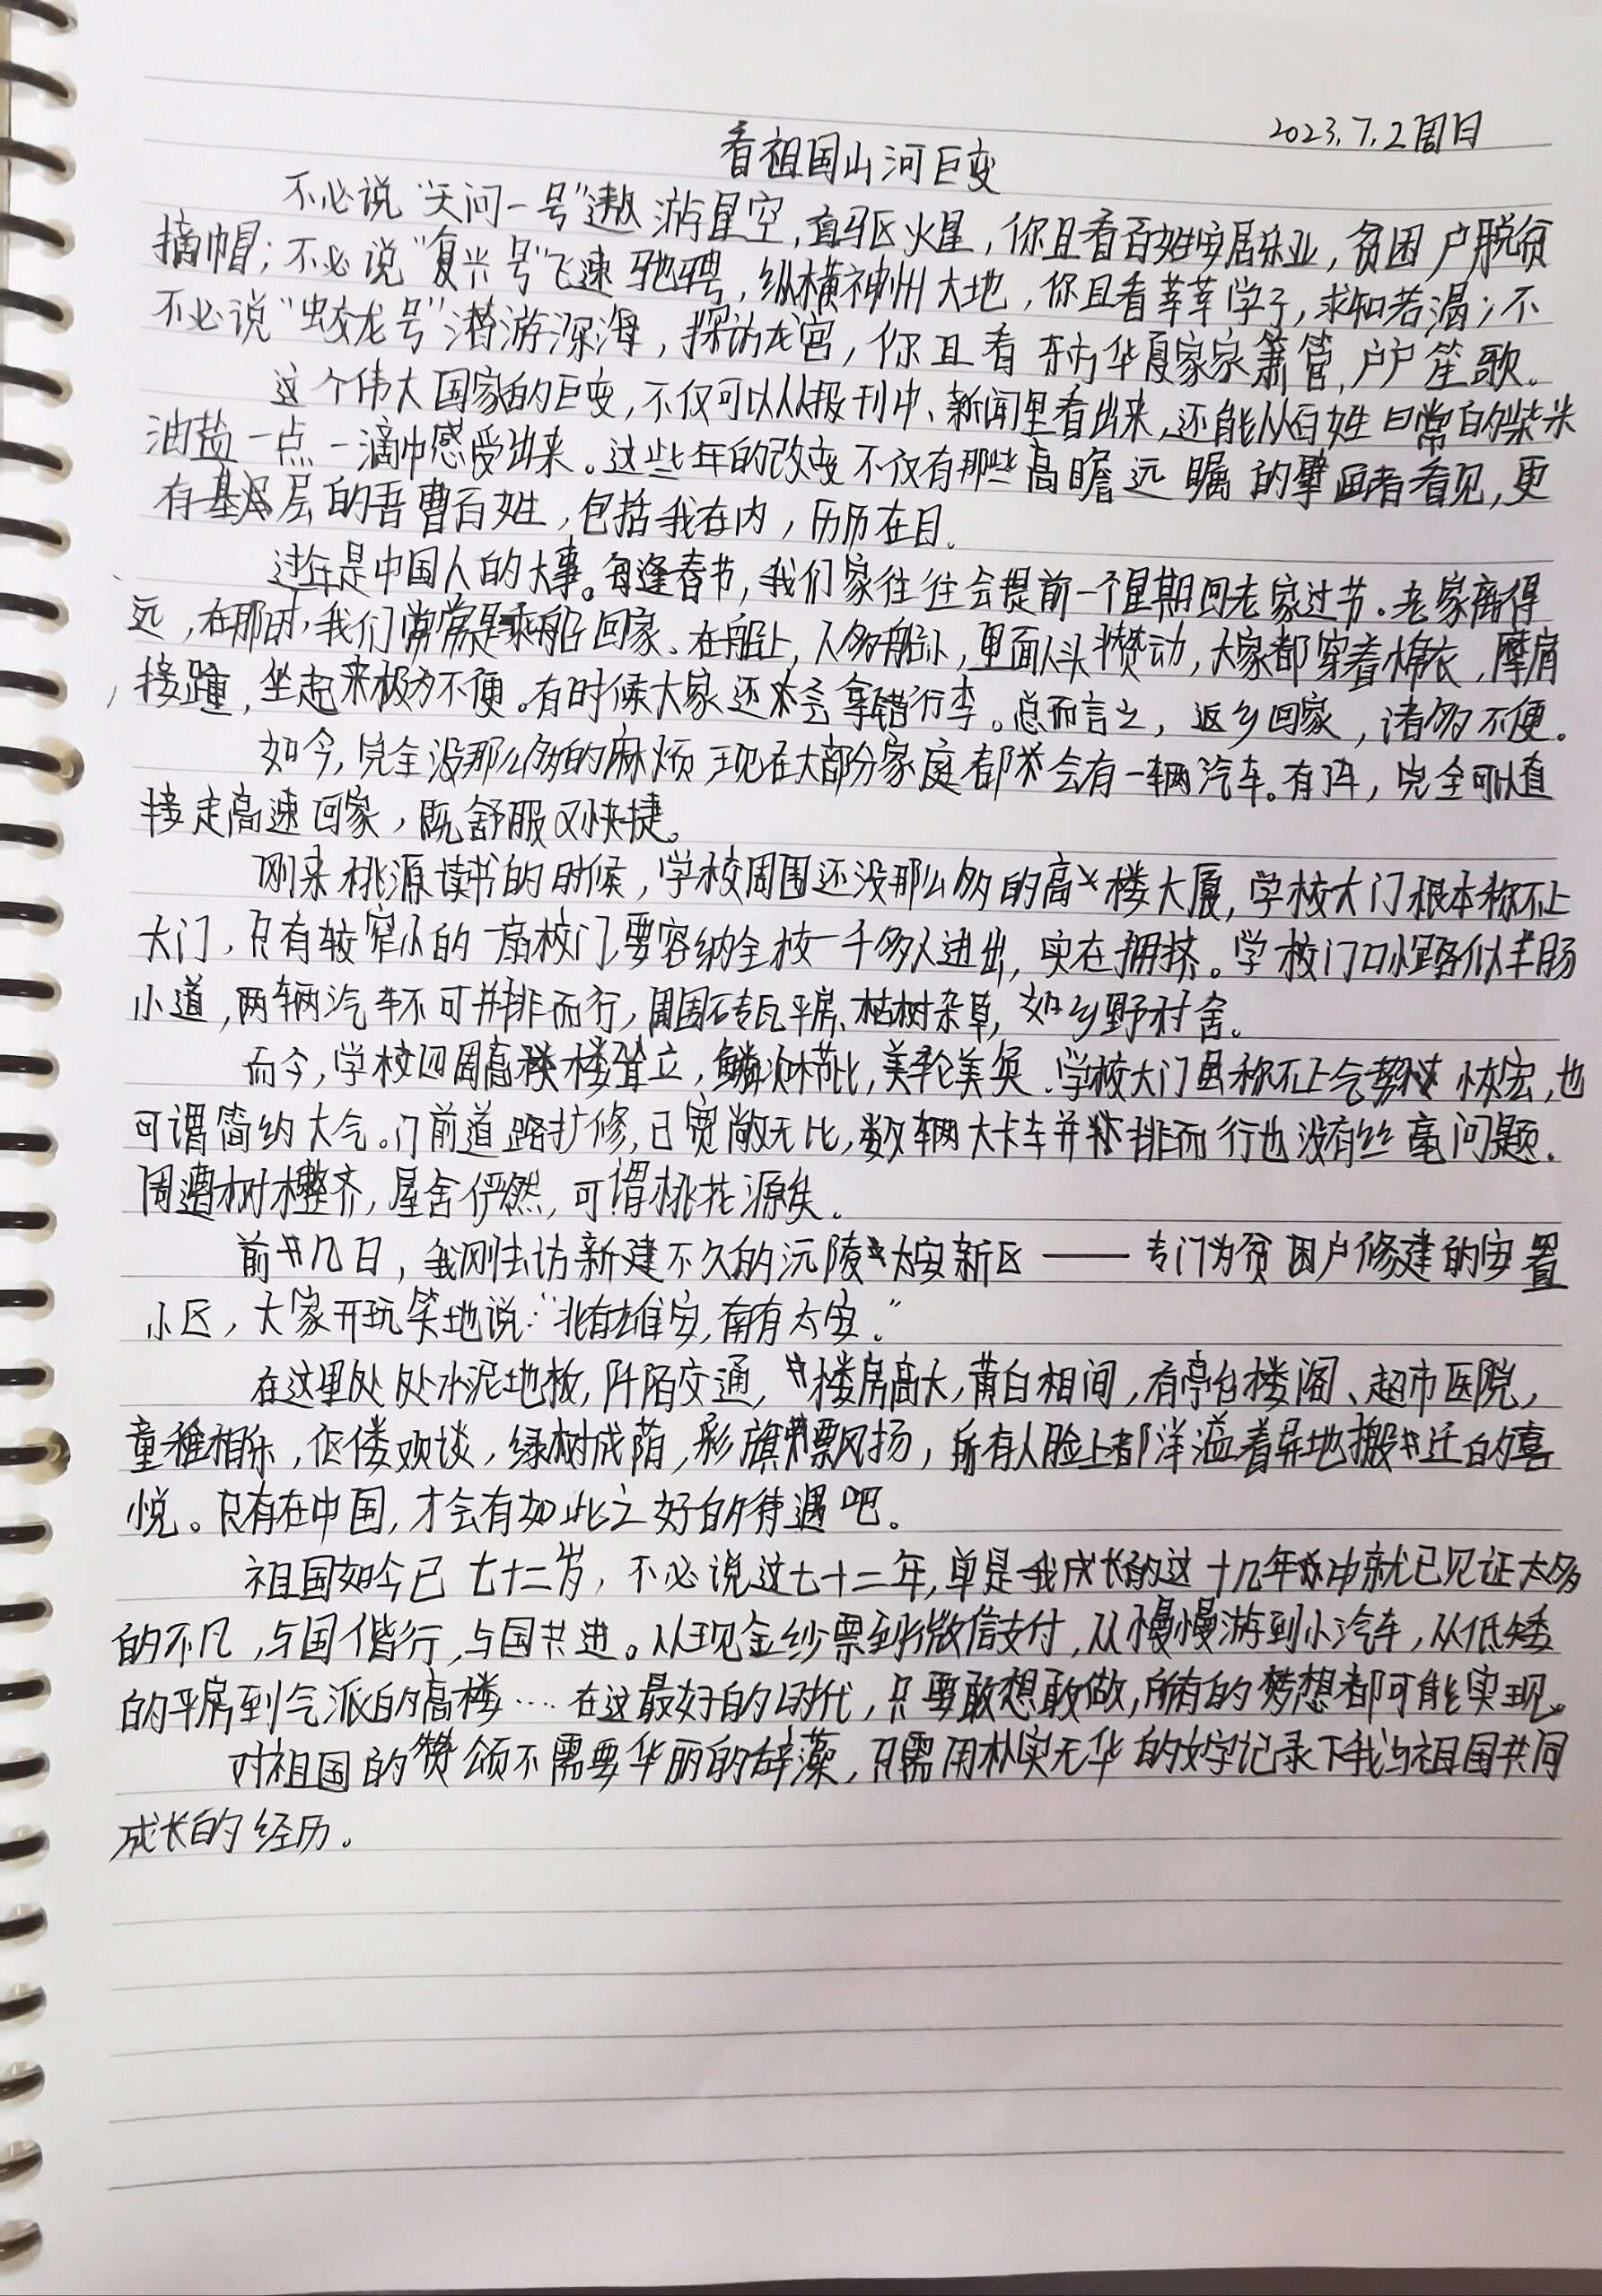 2023.7.2周日
看祖国山河巨变
不必说“天问一号”遨游星空，直驱火星，你且看百姓安居乐业，贫困户脱贫
摘帽；不必说“复兴号”飞速驰骋，纵横神州大地，你且看莘莘学子，求知若渴；不
不必说“蛟龙号”潜游深海，探访龙宫，你且看东方华夏家家箫管，户户笙歌。
这个伟大国家的巨变，不仅可以从报刊中、新闻里看出来，还能从百姓日常的柴米
油盐一点一滴中感受出来。这些年的改变不仅有那些高瞻远瞩的擘画者看见，更
有基层的吾曹百姓，包括我在内，历历在目。
过年是中国人的大事。每逢春节，我们家往往会提前一个星期回老家过节。老家离得
远，在那时，我们常常是乘船回家。在船上，人多船小，里面人头攒动，大家都穿着棉衣，摩肩
接踵，坐起来极为不便。有时候大家还会拿错行李。总而言之，返乡回家，诸多不便。
如今，完全没那么多的麻烦 现在大部分家庭都会有一辆汽车。有了车，完全可以直
接走高速回家，既舒服又快捷。
刚来桃源读书的时候，学校周围还没那么多的高楼大厦，学校大门根本称不上
大门，只有较窄小的一扇校门，要容纳全校一千多人进出，实在拥挤。学校门口小路似羊肠
小道，两辆汽车不可并排而行，周围砖瓦平房、枯树杂草，如乡野村舍。
而今，学校四周高楼耸立，鳞次栉比，美轮美奂。学校大门虽称不上气势恢宏，也
可谓简约大气。门前道路扩修，已宽敞无比，数辆大卡车并排而行也没有丝毫问题。
周遭树木整齐，屋舍俨然，可谓桃花源矣。
前几日，我刚去访新建不久的沅陵太安新区——专门为贫困户修建的安置
小区，大家开玩笑地说：“北有雄安，南有太安。”
在这里处处水泥地板，阡陌交通，楼房高大，黄白相间，有亭台楼阁、超市医院，
童稚相乐，伛偻欢谈，绿树成荫，彩旗飘扬，所有人脸上都洋溢着异地搬迁的喜
悦。只有在中国，才会有如此之好的待遇吧。
祖国如今已七十二岁，不必说这七十二年，单是我成长的这十几年中就已见证太多
的不凡，与国偕行，与国共进。从现金纱票到微信支付，从慢慢游到小汽车，从低矮
的平房到气派的高楼……在这最好的时代，只要敢想敢做，所有的梦想都可能实现。
对祖国的赞颂不需要华丽的辞藻，只需用朴实无华的文字记录下我与祖国共同
成长的经历。